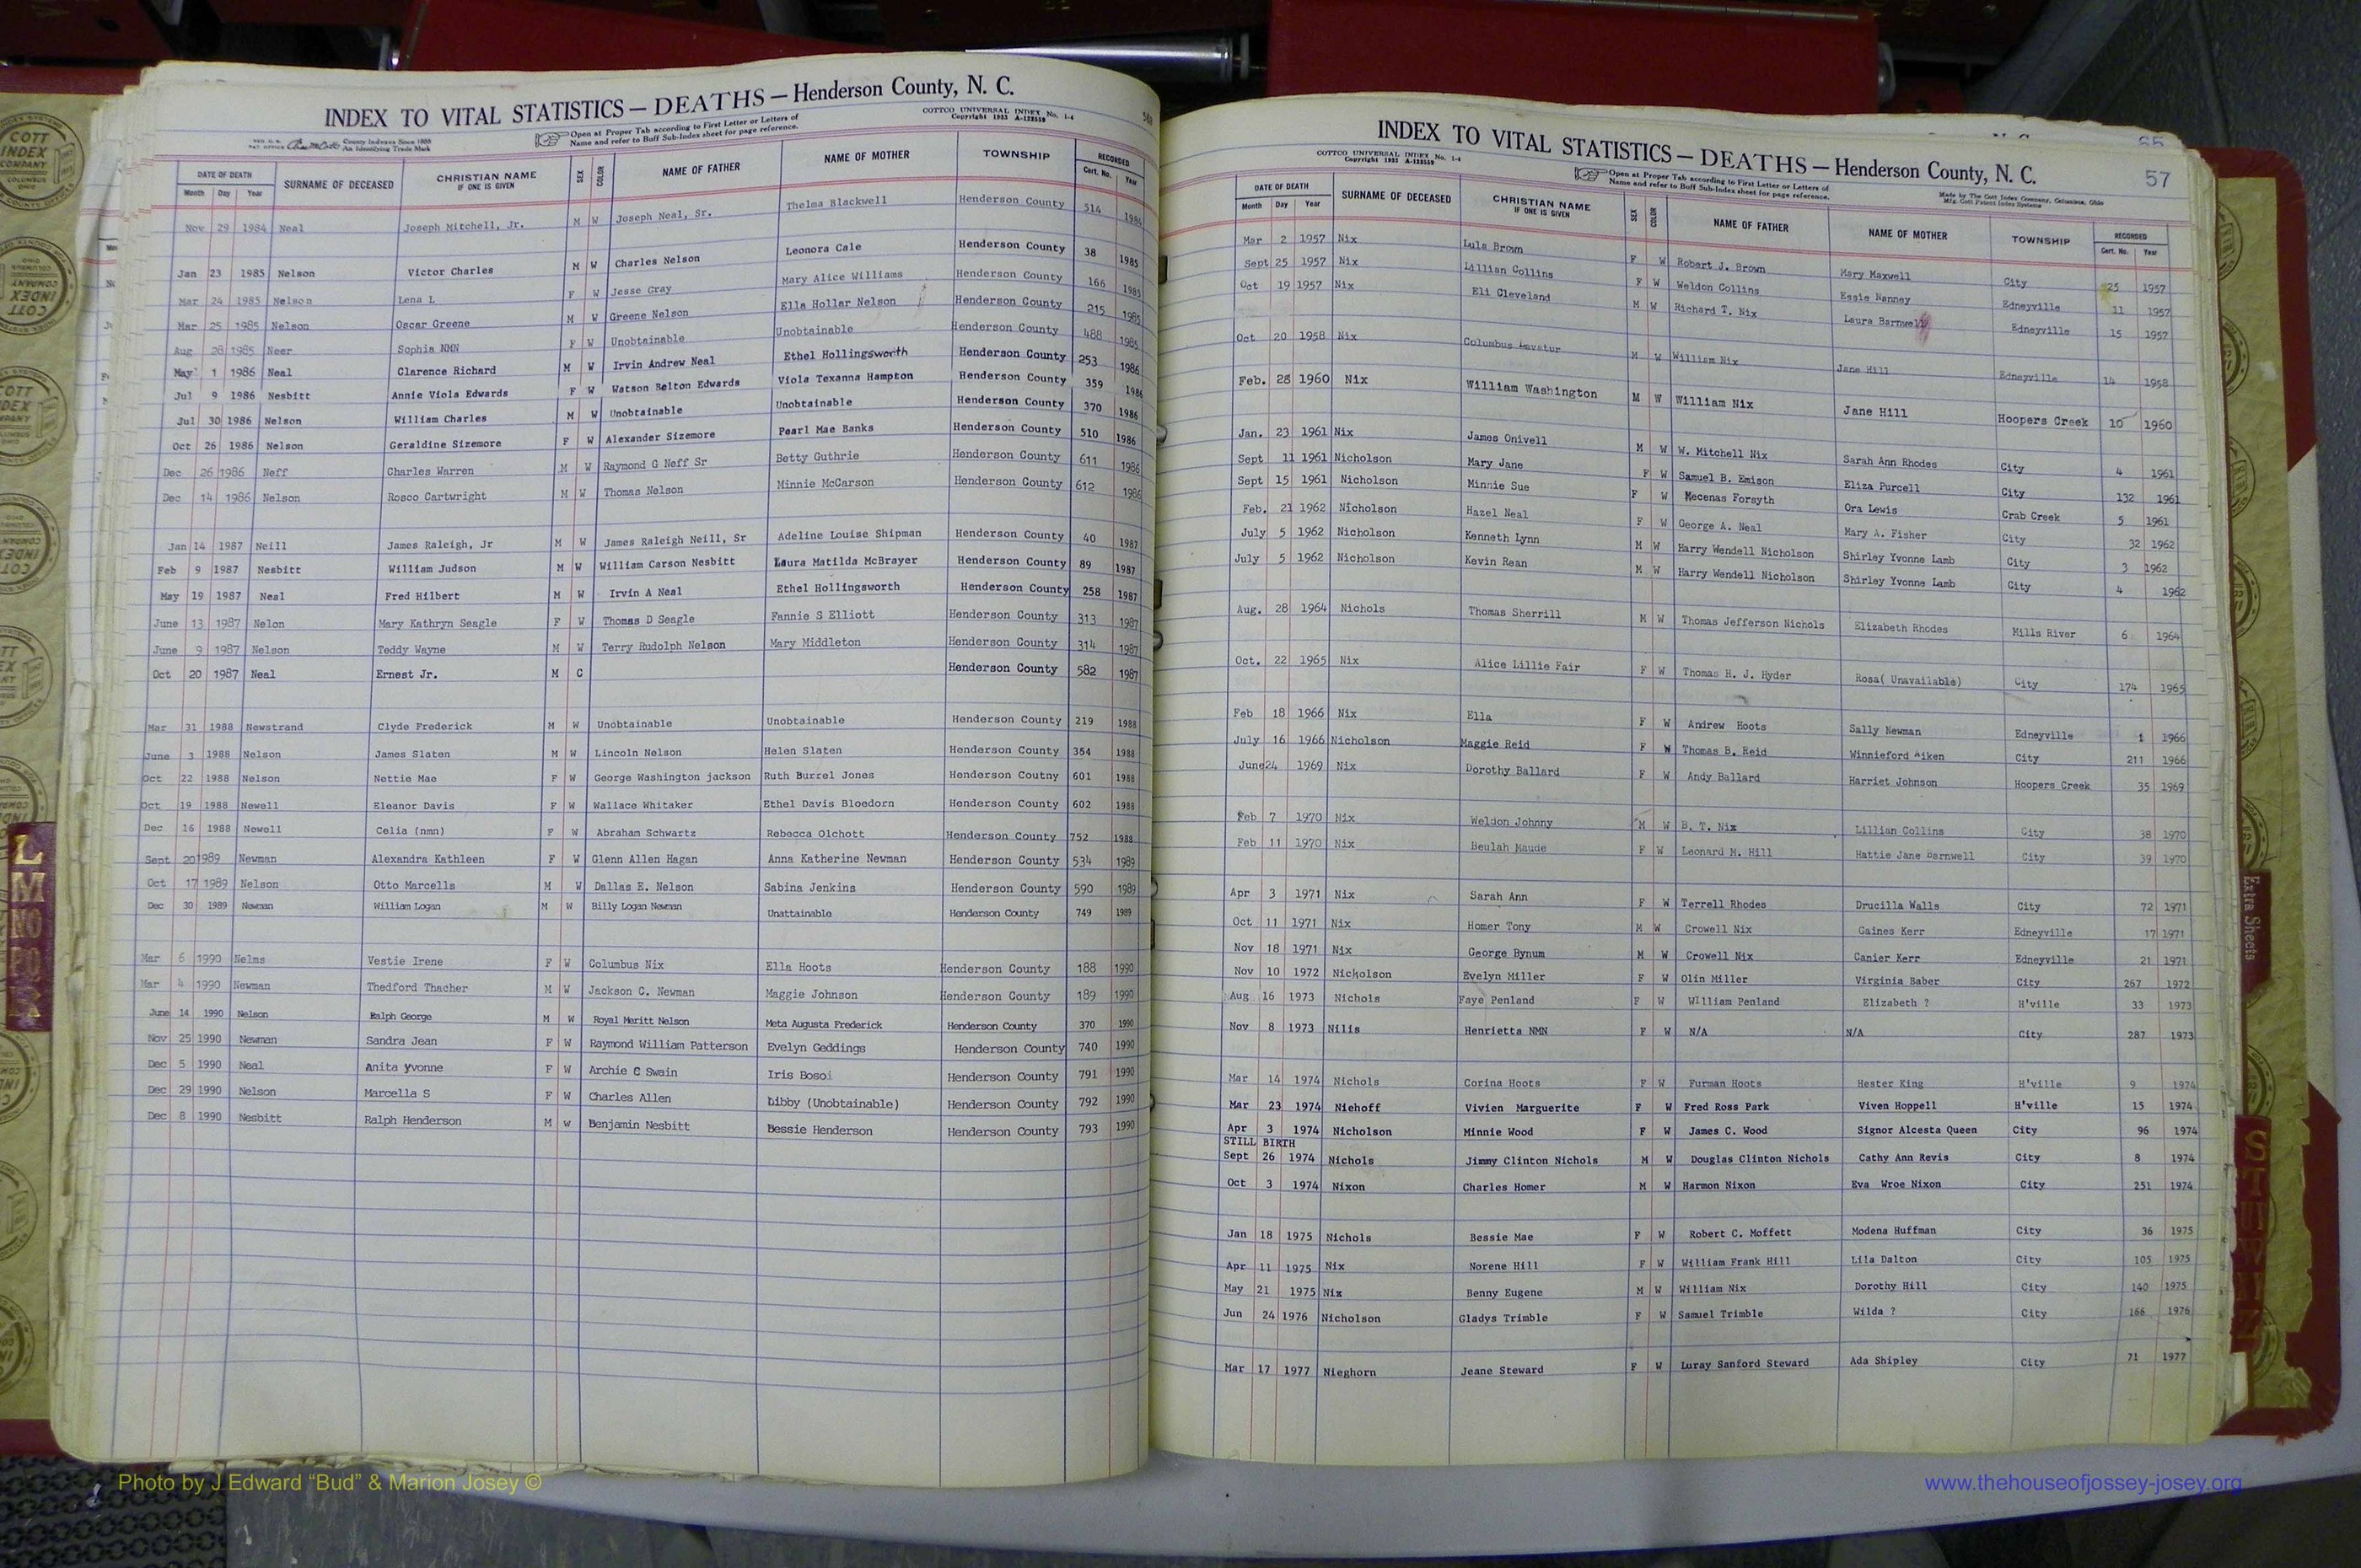 INDEX TO VITAL STATISTICS — DEATHS — Henderson County, N. C.
COTTCO UNIVERSAL INDEX No. 1-4
Copyright 1933 A-123559
County Indexes Since 1888
An Identifying Trade Mark
Open at Proper Tab according to First Letter or Letters of
Name and refer to Buff Sub-Index sheet for page reference.
DATE OF DEATH SURNAME OF DECEASED CHRISTIAN NAME IF ONE IS GIVEN SEX COLOR NAME OF FATHER NAME OF MOTHER TOWNSHIP RECORDED
Month Day Year Cert. No. Year
Nov 29 1984 Neal Joseph Mitchell, Jr. M W Joseph Neal, Sr. Thelma Blackwell Henderson County 514 1984
Jan 23 1985 Nelson Victor Charles M W Charles Nelson Leonora Cale Henderson County 38 1985
Mar 24 1985 Nelson Lena L F W Jesse Gray Mary Alice Williams Henderson County 166 1985
Mar 25 1985 Nelson Oscar Greene M W Greene Nelson Ella Hollar Nelson Henderson County 215 1985
Aug 28 1985 Neer Sophia NMN F W Unobtainable Unobtainable Henderson County 488 1985
May 1 1986 Neal Clarence Richard M W Irvin Andrew Neal Ethel Hollingsworth Henderson County 253 1986
Jul 9 1986 Nesbitt Annie Viola Edwards F W Watson Belton Edwards Viola Texanna Hampton Henderson County 359 1986
Jul 30 1986 Nelson William Charles M W Unobtainable Unobtainable Henderson County 370 1986
Oct 26 1986 Nelson Geraldine Sizemore F W Alexander Sizemore Pearl Mae Banks Henderson County 510 1986
Dec 26 1986 Neff Charles Warren M W Raymond G Neff Sr Betty Guthrie Henderson County 611 1986
Dec 14 1986 Nelson Rosco Cartwright M W Thomas Nelson Minnie McCarson Henderson County 612 1986
Jan 14 1987 Neill James Raleigh, Jr M W James Raleigh Neill, Sr Adeline Louise Shipman Henderson County 40 1987
Feb 9 1987 Nesbitt William Judson M W William Carson Nesbitt Laura Matilda McBrayer Henderson County 89 1987
May 19 1987 Neal Fred Hilbert M W Irvin A Neal Ethel Hollingsworth Henderson County 258 1987
June 13 1987 Nelon Mary Kathryn Seagle F W Thomas D Seagle Fannie S Elliott Henderson County 313 1987
June 9 1987 Nelson Teddy Wayne M W Terry Rudolph Nelson Mary Middleton Henderson County 314 1987
Oct 20 1987 Neal Ernest Jr. M C Henderson County 582 1987
Mar 31 1988 Newstrand Clyde Frederick M W Unobtainable Unobtainable Henderson County 219 1988
June 3 1988 Nelson James Slaten M W Lincoln Nelson Helen Slaten Henderson County 354 1988
Oct 22 1988 Nelson Nettie Mae F W George Washington jackson Ruth Burrel Jones Henderson Coutny 601 1988
Oct 19 1988 Newell Eleanor Davis F W Wallace Whitaker Ethel Davis Bloedorn Henderson County 602 1988
Dec 16 1988 Newell Celia (nmn) F W Abraham Schwartz Rebecca Olchott Henderson County 752 1988
Sept 20 1989 Newman Alexandra Kathleen F W Glenn Allen Hagan Anna Katherine Newman Henderson County 534 1989
Oct 17 1989 Nelson Otto Marcells M W Dallas E. Nelson Sabina Jenkins Henderson County 590 1989
Dec 30 1989 Newman William Logan M W Billy Logan Newman Unattainable Henderson County 749 1989
Mar 6 1990 Nelms Vestie Irene F W Columbus Nix Ella Hoots Henderson County 188 1990
Mar 4 1990 Newman Thedford Thacher M W Jackson C. Newman Maggie Johnson Henderson County 189 1990
June 14 1990 Nelson Ralph George M W Royal Meritt Nelson Meta Augusta Frederick Henderson County 370 1990
Nov 25 1990 Newman Sandra Jean F W Raymond William Patterson Evelyn Geddings Henderson County 740 1990
Dec 5 1990 Neal Anita Yvonne F W Archie C Swain Iris Bosoi Henderson County 791 1990
Dec 29 1990 Nelson Marcella S F W Charles Allen Libby (Unobtainable) Henderson County 792 1990
Dec 8 1990 Nesbitt Ralph Henderson M W Benjamin Nesbitt Bessie Henderson Henderson County 793 1990
INDEX TO VITAL STATISTICS — DEATHS — Henderson County, N. C. 57
COTTCO UNIVERSAL INDEX No. 1-4
Copyright 1933 A-123559
Open at Proper Tab according to First Letter or Letters of
Name and refer to Buff Sub-Index sheet for page reference.
Made by The Cott Index Company, Columbus, Ohio
Mfg. Cott Patent Index Systems
DATE OF DEATH SURNAME OF DECEASED CHRISTIAN NAME IF ONE IS GIVEN SEX COLOR NAME OF FATHER NAME OF MOTHER TOWNSHIP RECORDED
Month Day Year Cert. No. Year
Mar 2 1957 Nix Lula Brown F W Robert J. Brown Mary Maxwell City 25 1957
Sept 25 1957 Nix Lillian Collins F W Weldon Collins Essie Nanney Edneyville 11 1957
Oct 19 1957 Nix Eli Cleveland M W Richard T. Nix Laura Barnwell Edneyville 15 1957
Oct 20 1958 Nix Columbus M W William Nix Jane Hill Edneyville 14 1958
Feb. 28 1960 Nix William Washington M W William Nix Jane Hill Hoopers Creek 10 1960
Jan. 23 1961 Nix James Onivell M W W. Mitchell Nix Sarah Ann Rhodes City 4 1961
Sept 11 1961 Nicholson Mary Jane F W Samuel B. Emison Eliza Purcell City 132 1961
Sept 15 1961 Nicholson Minnie Sue F W Mecenas Forsyth Ora Lewis Crab Creek 5 1961
Feb. 21 1962 Nicholson Hazel Neal F W George A. Neal Mary A. Fisher City 32 1962
July 5 1962 Nicholson Kenneth Lynn M W Harry Wendell Nicholson Shirley Yvonne Lamb City 3 1962
July 5 1962 Nicholson Kevin Rean M W Harry Wendell Nicholson Shirley Yvonne Lamb City 4 1962
Aug. 28 1964 Nichols Thomas Sherrill M W Thomas Jefferson Nichols Elizabeth Rhodes Mills River 6 1964
Oct. 22 1965 Nix Alice Lillie Fair F W Thomas H. J. Hyder Rosa( Unavailable) City 174 1965
Feb 18 1966 Nix Ella F W Andrew Hoots Sally Newman Edneyville 1 1966
July 16 1966 Nicholson Maggie Reid F W Thomas B. Reid Winnieford Aiken City 211 1966
June 24 1969 Nix Dorothy Ballard F W Andy Ballard Harriet Johnson Hoopers Creek 35 1969
Feb 7 1970 Nix Weldon Johnny M W B. T. Nix Lillian Collins City 38 1970
Feb 11 1970 Nix Beulah Maude F W Leonard M. Hill Hattie Jane Barnwell City 39 1970
Apr 3 1971 Nix Sarah Ann F W Terrell Rhodes Drucilla Walls City 72 1971
Oct 11 1971 Nix Homer Tony M W Crowell Nix Gaines Kerr Edneyville 17 1971
Nov 18 1971 Nix George Bynum M W Crowell Nix Canier Kerr Edneyville 21 1971
Nov 10 1972 Nicholson Evelyn Miller F W Olin Miller Virginia Baber City 267 1972
Aug 16 1973 Nichols Faye Penland F W William Penland Elizabeth ? H'ville 33 1973
Nov 8 1973 Nilis Henrietta NMN F W N/A N/A City 287 1973
Mar 14 1974 Nichols Corina Hoots F W Furman Hoots Hester King H'ville 9 1974
Mar 23 1974 Niehoff Vivien Marguerite F W Fred Ross Park Viven Hoppell H'ville 15 1974
Apr 3 1974 Nicholson Minnie Wood F W James C. Wood Signor Alcesta Queen City 96 1974
STILL BIRTH
Sept 26 1974 Nichols Jimmy Clinton Nichols M W Douglas Clinton Nichols Cathy Ann Revis City 8 1974
Oct 3 1974 Nixon Charles Homer M W Harmon Nixon Eva Wroe Nixon City 251 1974
Jan 18 1975 Nichols Bessie Mae F W Robert C. Moffett Modena Huffman City 36 1975
Apr 11 1975 Nix Norene Hill F W William Frank Hill Lila Dalton City 105 1975
May 21 1975 Nix Benny Eugene M W William Nix Dorothy Hill City 140 1975
Jun 24 1976 Nicholson Gladys Trimble F W Samuel Trimble Wilda ? City 166 1976
Mar 17 1977 Nieghorn Jeane Steward F W Luray Sanford Steward Ada Shipley City 71 1977
Extra Sheets
Photo by J Edward “Bud” & Marion Josey ©
www.thehouseofjossey-josey.org